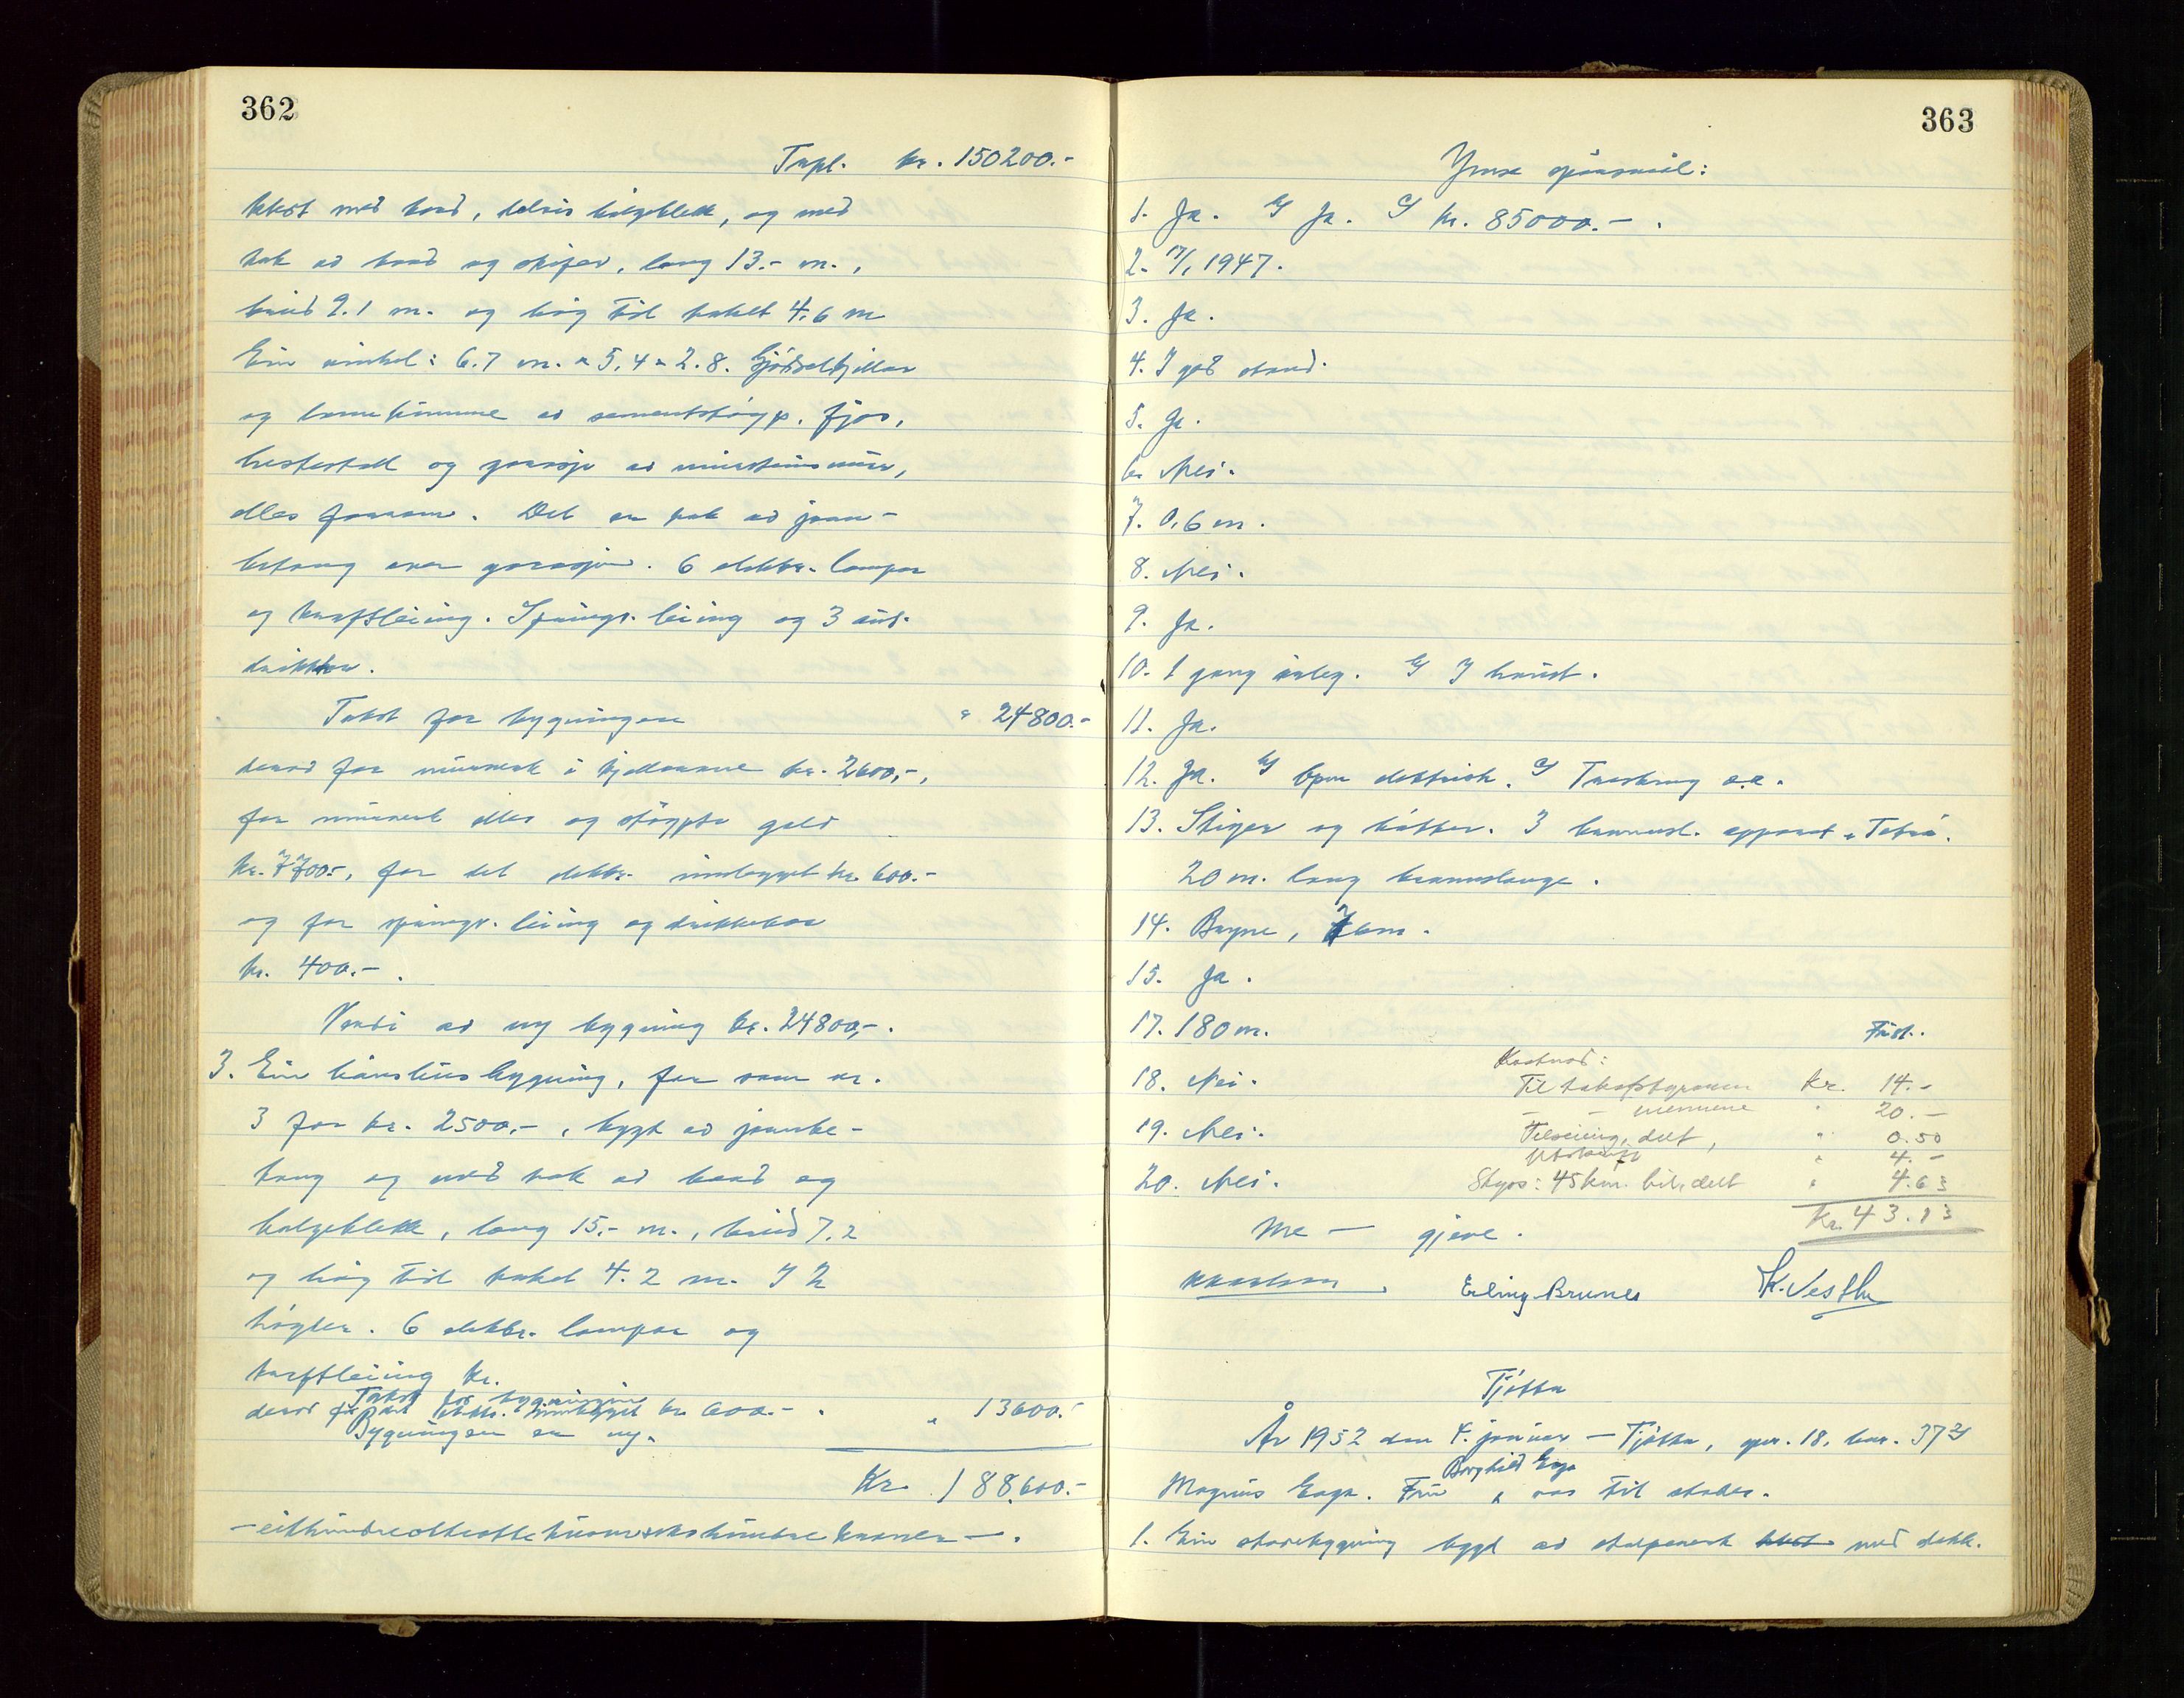 362
Trpl. kr. 150200.-
tekst med bord, delvis bølgeblekk, og med
tak av bord og skifer, lang 13.- m.,
breid 9.1 m. og høg til taket 4.6 m
Ein vinkel: 6.7 m. × 5.4 × 2.8. Gjødselkjellar
og lannkumme av sementstøyp. Fjos,
hestestall og garasje av mursteinsmur,
elles Det er tak av jarn-
betong over garasjen. 6 elektr. lampor
og kraftleiing. Springv. leiing og 3 aut.
drikkkar.
Takst for bygningen " 24800.-
derav for murverk i kjellarane kr. 2600,-,
for murverk elles og støypte golv
kr. 7700.-, for det elektr. innlegget kr. 600.-
og for springv. leiing og drikkekar
kr. 400.- .
Verdi av ny bygning kr. 24800,- .
3. Ein hønshusbygning, før som nr.
3 for kr. 2500.- , bygt av jarnbe-
tong og med tak av bord og
bølgeblekk, lang 15.- m., breid 7.2
og høg til taket 4.2 m. I 2
høgder. 6 elektr. lampor og
kraftleiing kr.
Takst for bygningen
derav for det elektr. innlegget kr 600.- . " 13600.-
Bygningen er ny.
Kr. 188600.-
- eitthundreogåttiåttetusensekshundre kroner - .
363
Ymse spørsmål:
1. Ja. Ja. kr. 85000.- .
2. 17/1 1947.
3. Ja.
4. I god stand.
5. Ja.
6. Nei.
7. 0.6 m.
8. Nei.
9. Ja.
10. 1 gong årleg. I haust.
11. Ja.
12. Ja. Open elektrisk. Treskung o.a.
13. Stiger og bøtter. 3 brannsl. apparat "Tetra.
20 m. lang brannslange.
14. Bryne, 7 km.
15. Ja.
17. 180 m.
18. Nei.
19. Nei.
20. Nei.
Kostnad:
Til takstStyraren kr. 14.-
- - mennene " 20.-
delt, " 0.50
Utskrift " 4.-
Skyss: 45 km. bil, delt " 4.63
Kr. 43.13
Me - gjeve.
Erling Brunes
Tjøtta
År 1952 den 4. januar - Tjøtta, gnr. 18, bnr. 37
Borghild Eega
Magnus Eega. Fru var til stades.
1. Ein storebygning bygt av stolpeverk med dekk.